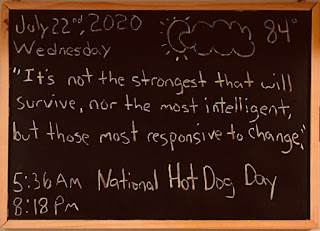 July 22nd, 2020 84°
Wednesday
"It's not the strongest that will
survive, nor the most intelligent,
but those most responsive to change."
5:36 AM National Hot Dog Day
8:18 PM